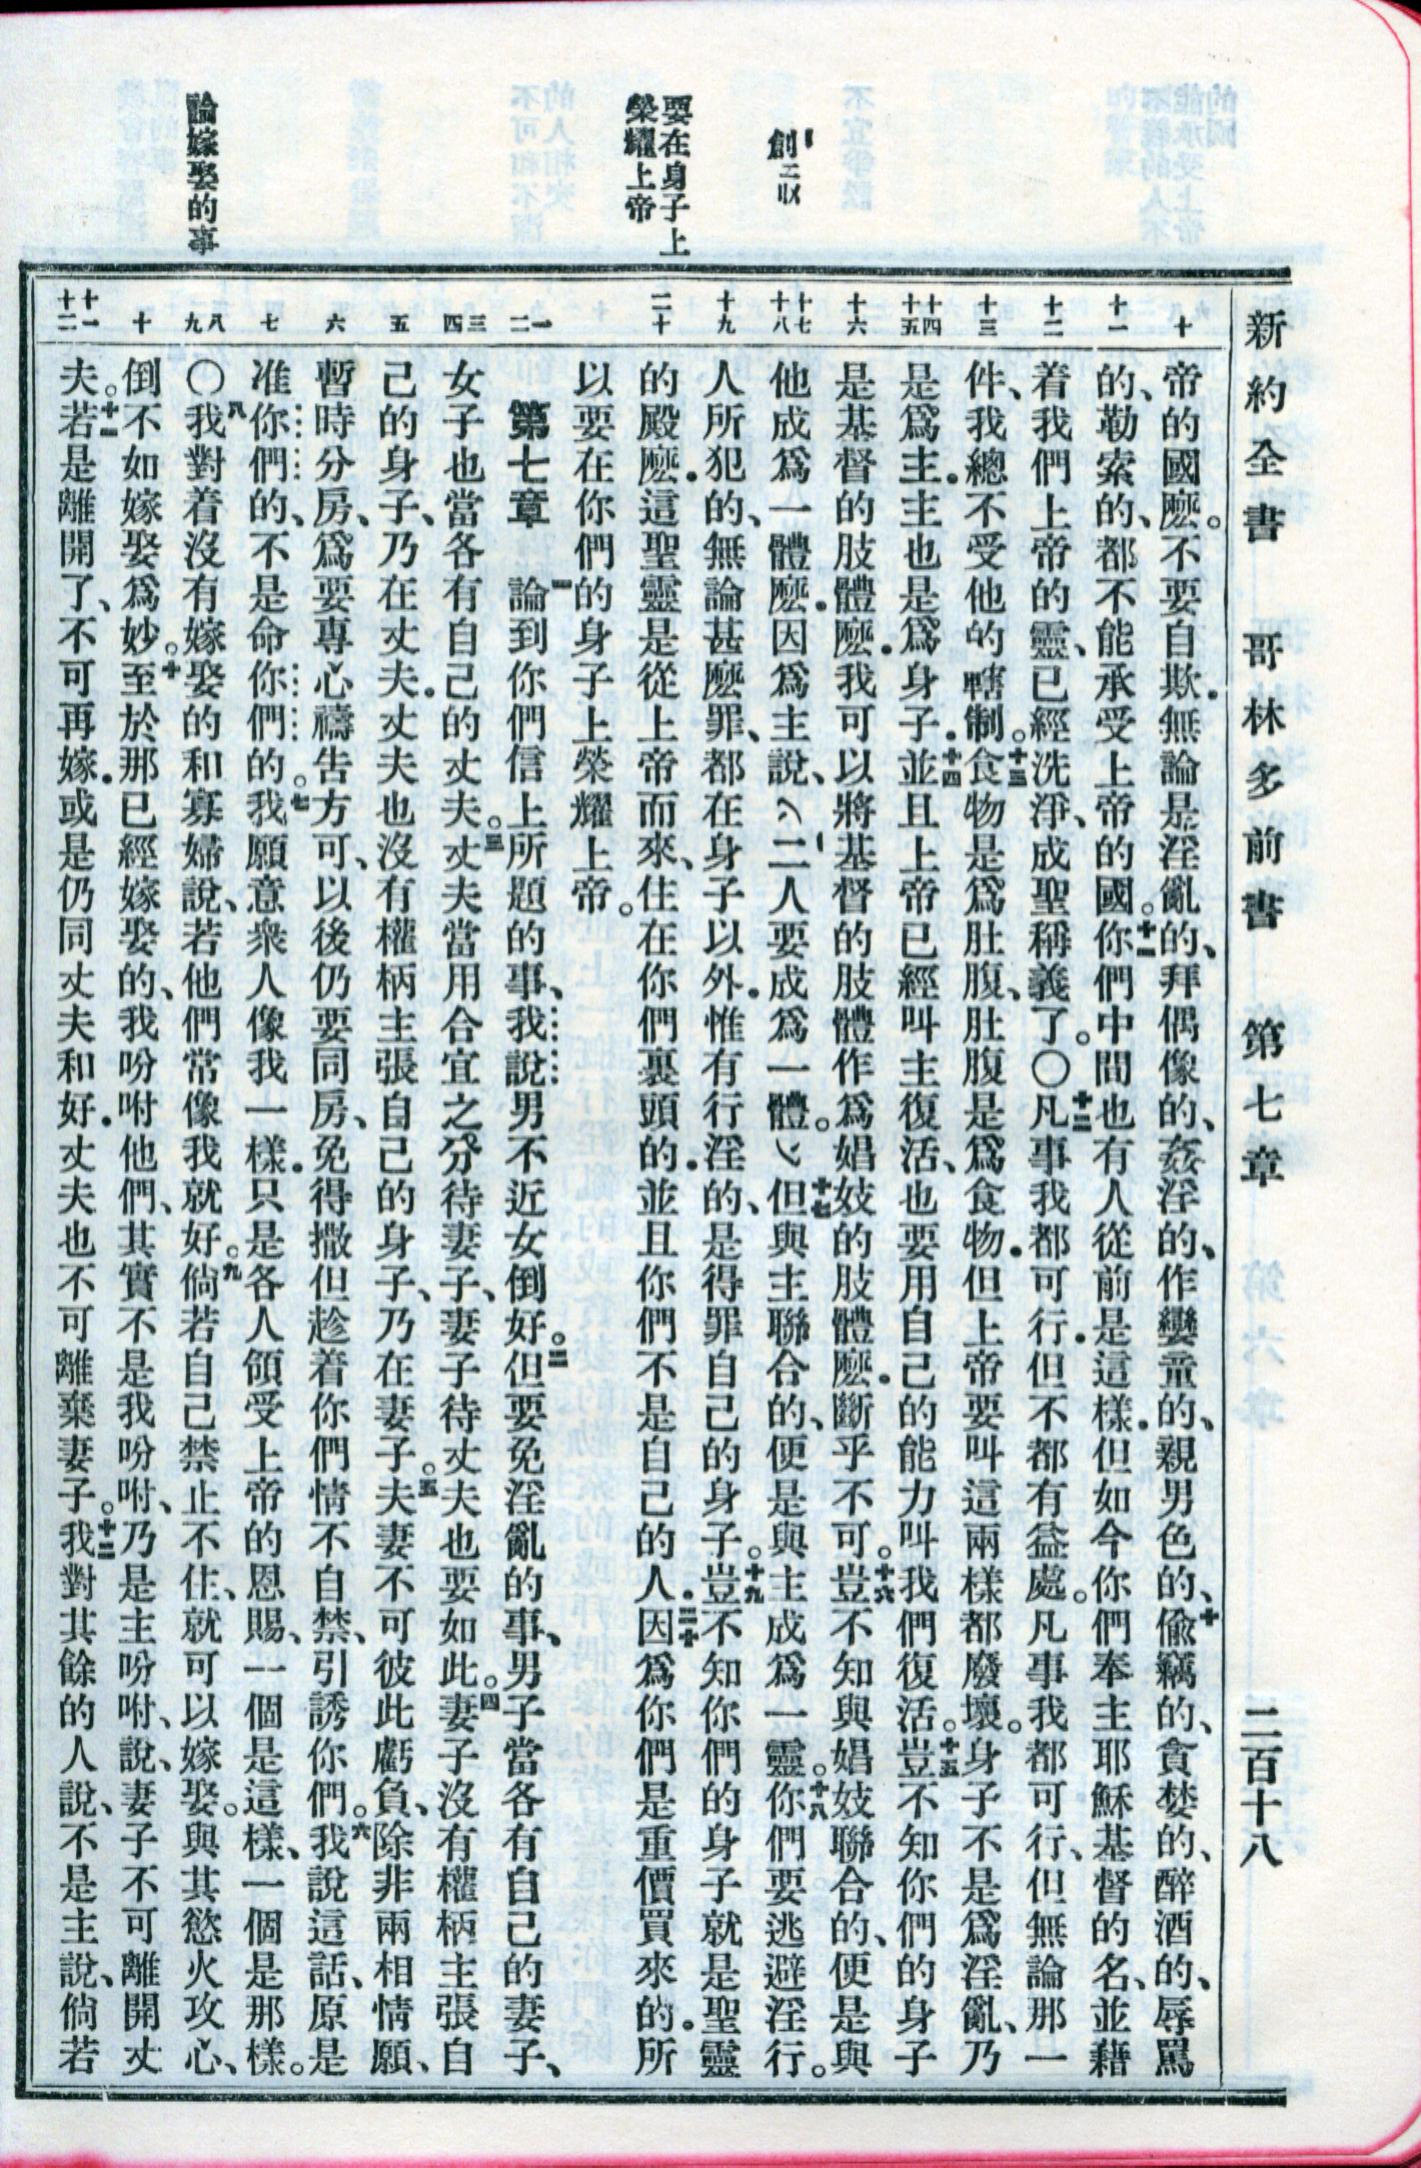 新約全書 哥林多前書 第七章 二百十八
創二廿四
要在身子上
榮耀上帝
論嫁娶的事
十
十一
十二
十三
十四
十五
十六
十七
十八
十九
二十
一
二
三
四
五
六
七
八
九
十
十一
十二
帝的國麽。不要自欺．無論是淫亂的、拜偶像的、姦淫的、作孌童的、親男色的、十偸竊的、貪婪的、醉酒的、辱罵
的、勒索的、都不能承受上帝的國。十一你們中間也有人從前是這樣．但如今你們奉主耶穌基督的名、並藉
着我們上帝的靈、已經洗淨、成聖稱義了。〇十二凡事我都可行．但不都有益處。凡事我都可行、但無論那一
件、我總不受他的轄制。十三食物是爲肚腹、肚腹是爲食物．但上帝要叫這兩樣都廢壞。身子不是爲淫亂、乃
是爲主．主也是爲身子．十四並且上帝已經叫主復活、也要用自己的能力叫我們復活。十五豈不知你們的身子
是基督的肢體麽．我可以將基督的肢體作爲娼妓的肢體麽．斷乎不可。十六豈不知與娼妓聯合的、便是與
他成爲一體麽．因爲主說、二人要成爲一體。十七但與主聯合的、便是與主成爲一靈。十八你們要逃避淫行。
人所犯的、無論甚麽罪、都在身子以外．惟有行淫的、是得罪自己的身子。十九豈不知你們的身子就是聖靈
的殿麽．這聖靈是從上帝而來、住在你們裏頭的．並且你們不是自己的人．二十因爲你們是重價買來的．所
以要在你們的身子上榮耀上帝。
第七章 一論到你們信上所題的事、我說男不近女倒好。二但要免淫亂的事、男子當各有自己的妻子、
女子也當各有自己的丈夫。三丈夫當用合宜之分待妻子、妻子待丈夫也要如此。四妻子沒有權柄主張自
己的身子、乃在丈夫．丈夫也沒有權柄主張自己的身子、乃在妻子。五夫妻不可彼此虧負、除非兩相情願、
暫時分房、爲要專心禱告方可、以後仍要同房、免得撒但趁着你們情不自禁、引誘你們。六我說這話、原是
准你們的、不是命你們的。七我願意衆人像我一樣．只是各人領受上帝的恩賜、一個是這樣、一個是那樣。
〇八我對着沒有嫁娶的和寡婦說、若他們常像我就好。九倘若自己禁止不住、就可以嫁娶。與其慾火攻心、
倒不如嫁娶爲妙。十至於那已經嫁娶的、我吩咐他們、其實不是我吩咐、乃是主吩咐、說、妻子不可離開丈
夫。十一若是離開了、不可再嫁．或是仍同丈夫和好．丈夫也不可離棄妻子。十二我對其餘的人說、不是主說、倘若